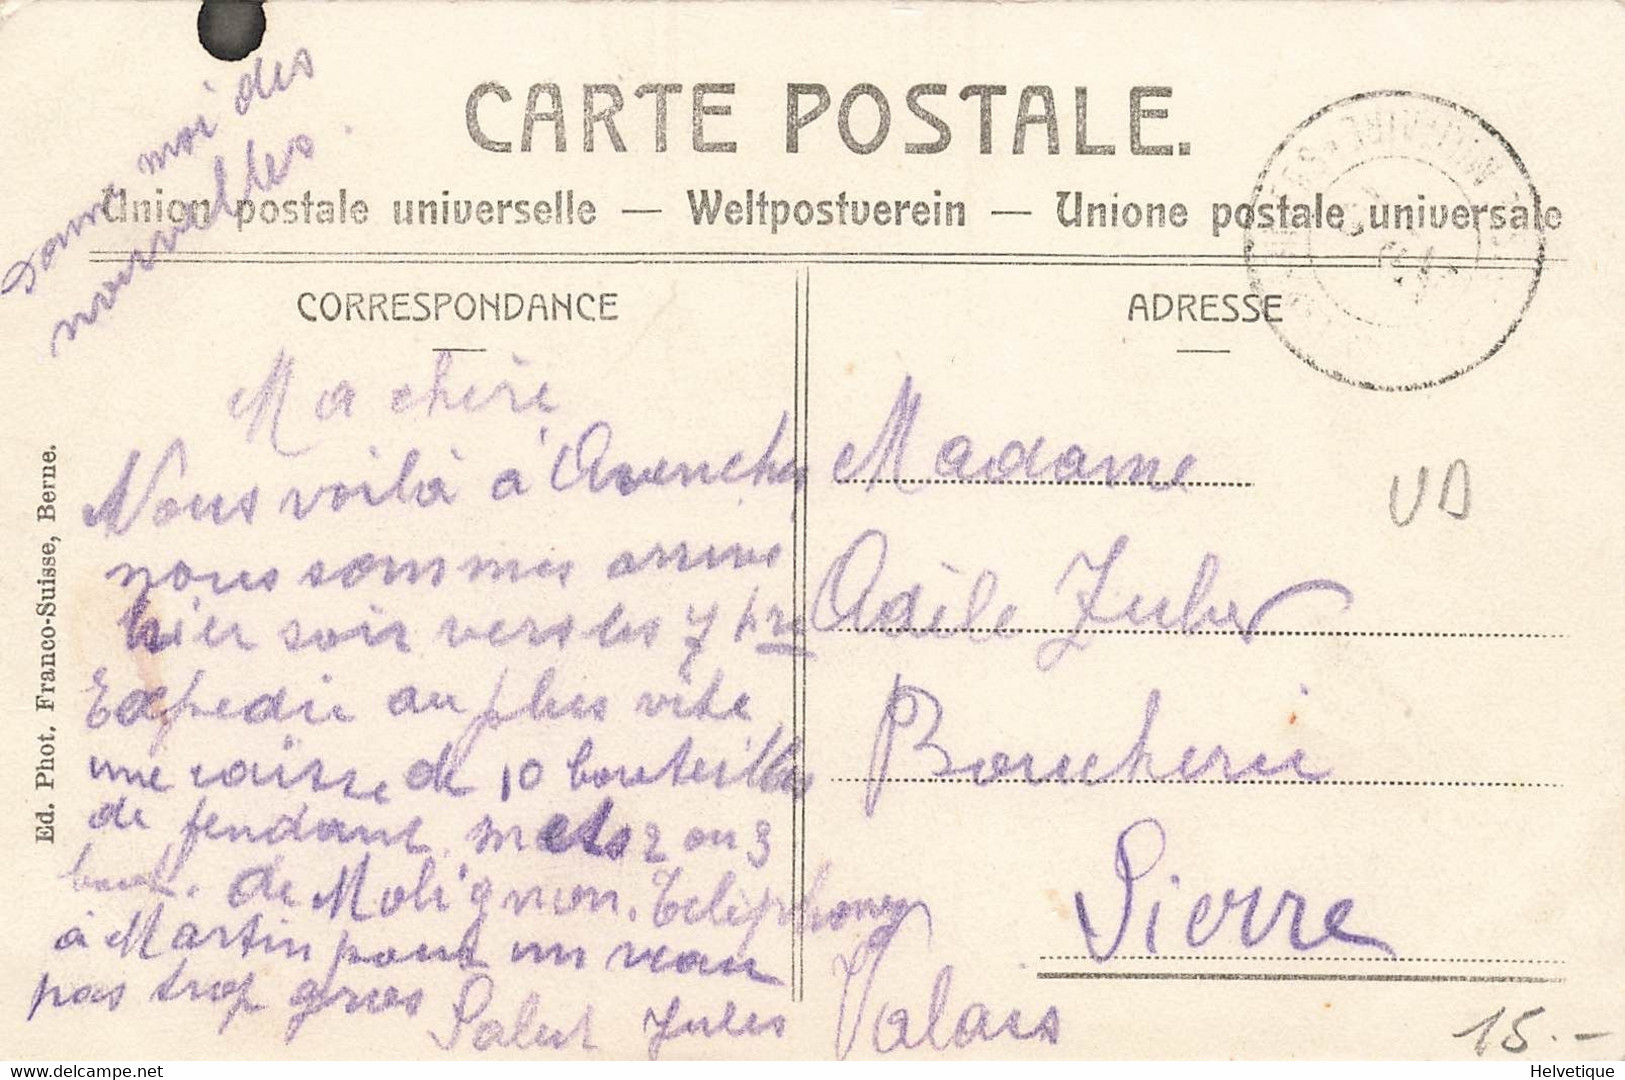 Donne moi des
nouvelles.
CARTE POSTALE.
Union postale universelle — Weltpostverein — Unione postale universale
CORRESPONDANCE
Ma chère
Nous voilà à Avenches
nous sommes arrivé
hier soir vers les 7 hrs
Expedie au plus vite
une caisse de 10 bouteilles
de fendant mets 2 ou 3
bout. de Molignon. Téléphonez
à Martin pour un veau
pas trop gros
Salut Jules
ADRESSE
Madame
Adèle Zuber
Boucherie
Sierre
Valais
VD
15.-
Ed. Phot. Franco-Suisse, Berne.
Helvetique